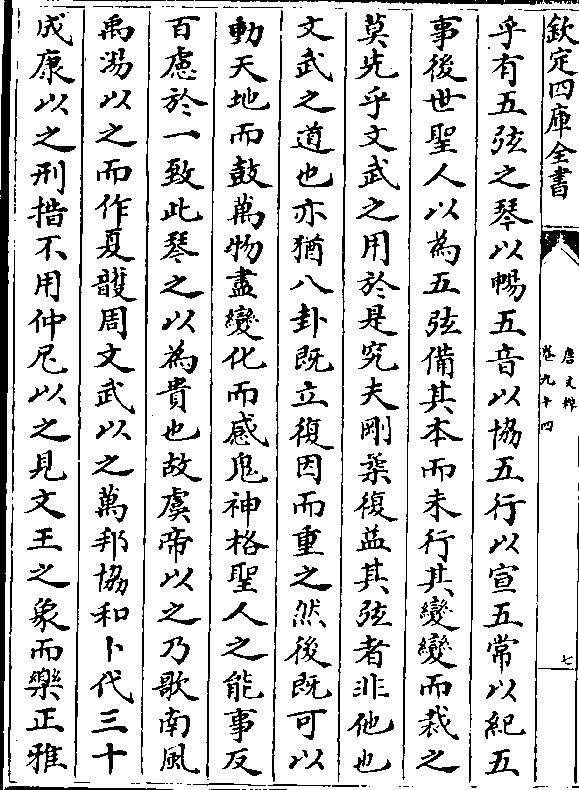 欽定四庫全書
唐文粹
卷九十四
七
乎有五弦之琴以暢五音以協五行以宣五常以紀五
事後世聖人以為五弦備其本而未行其變變而裁之
莫先乎文武之用於是究夫剛柔復益其弦者非他也
文武之道也亦猶八卦既立復因而重之然後既可以
動天地而鼓萬物盡變化而感鬼神格聖人之能事反
百慮於一致此琴之以為貴也故虞帝以之乃歌南風
禹湯以之而作夏頀周文武以之萬邦協和卜代三十
成康以之刑措不用仲尼以之見文王之象而樂正雅